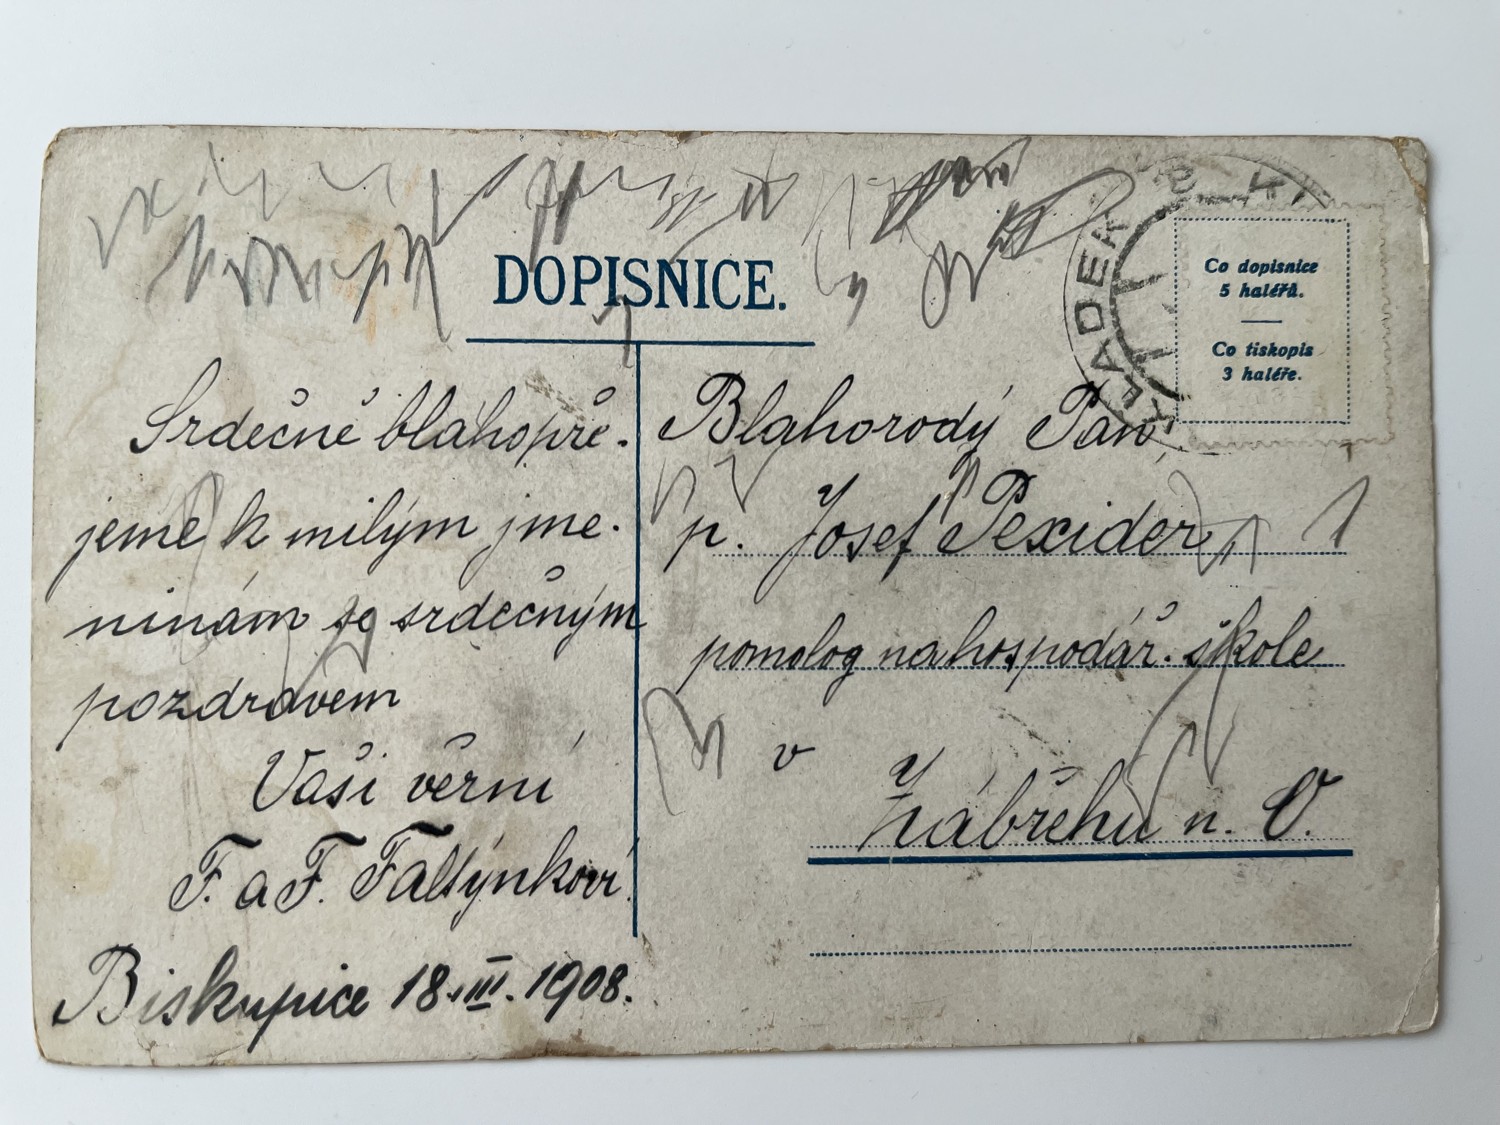 DOPISNICE.
Co dopisnice
5 haléřů.
Co tiskopis
3 haléře.
KLADEK
Srdečně bláhopře-
jeme k milým jme-
ninám se srdečným
pozdravem
Vaši věrní
F. a F. Faltýnkovi
Biskupice 18.III.1908.
Blahorodý Pan
p. Josef Pexider
pomolog na hospodář. škole
v
Zábřehu n. O.